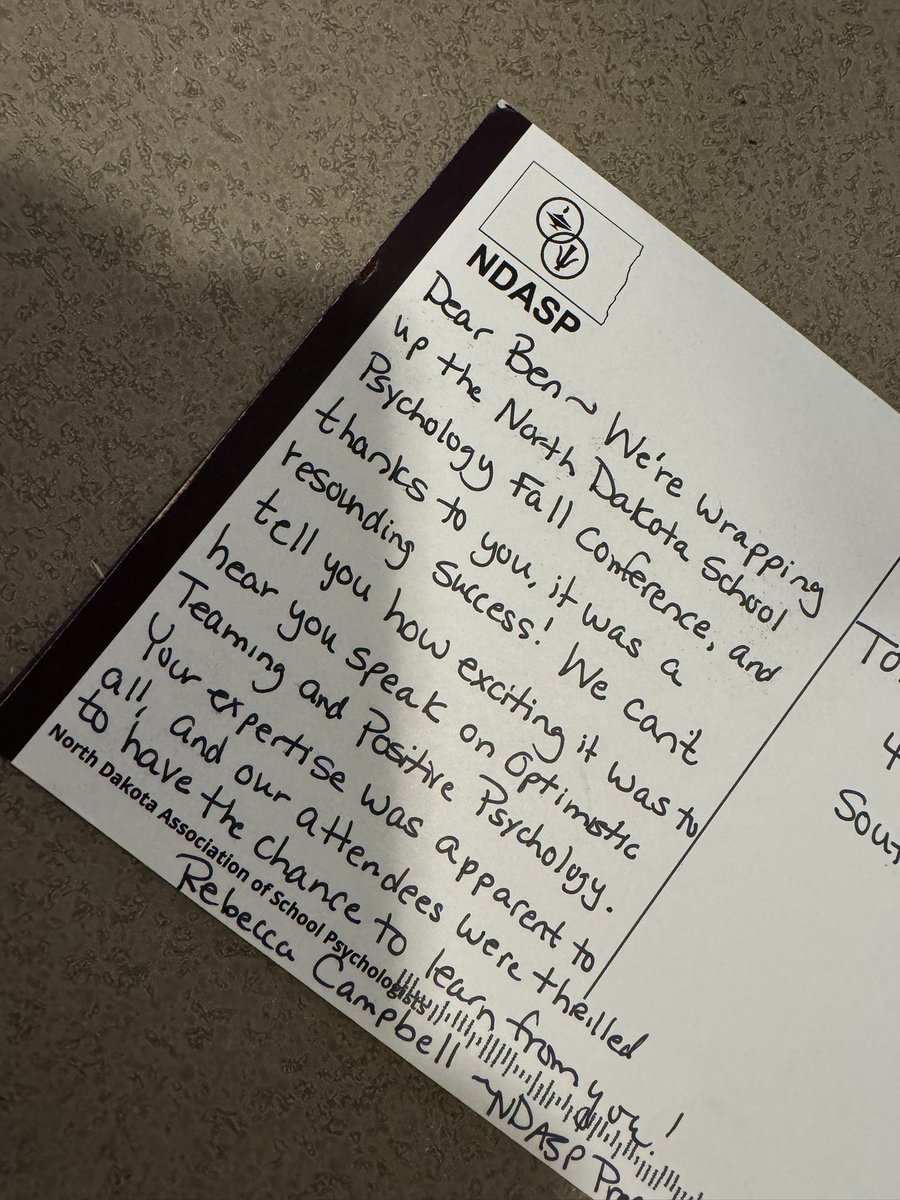 NDASP
Dear Ben~ We're wrapping
up the North Dakota School
Psychology Fall Conference, and
thanks to you, it was a
resounding success! We can't
tell you how exciting it was to
hear you speak on Optimistic
Teaming and Positive Psychology.
Your expertise was apparent to
all, and our attendees were thrilled
to have the chance to learn from you!
North Dakota Association of School Psychologists
Rebecca Campbell ~NDASP